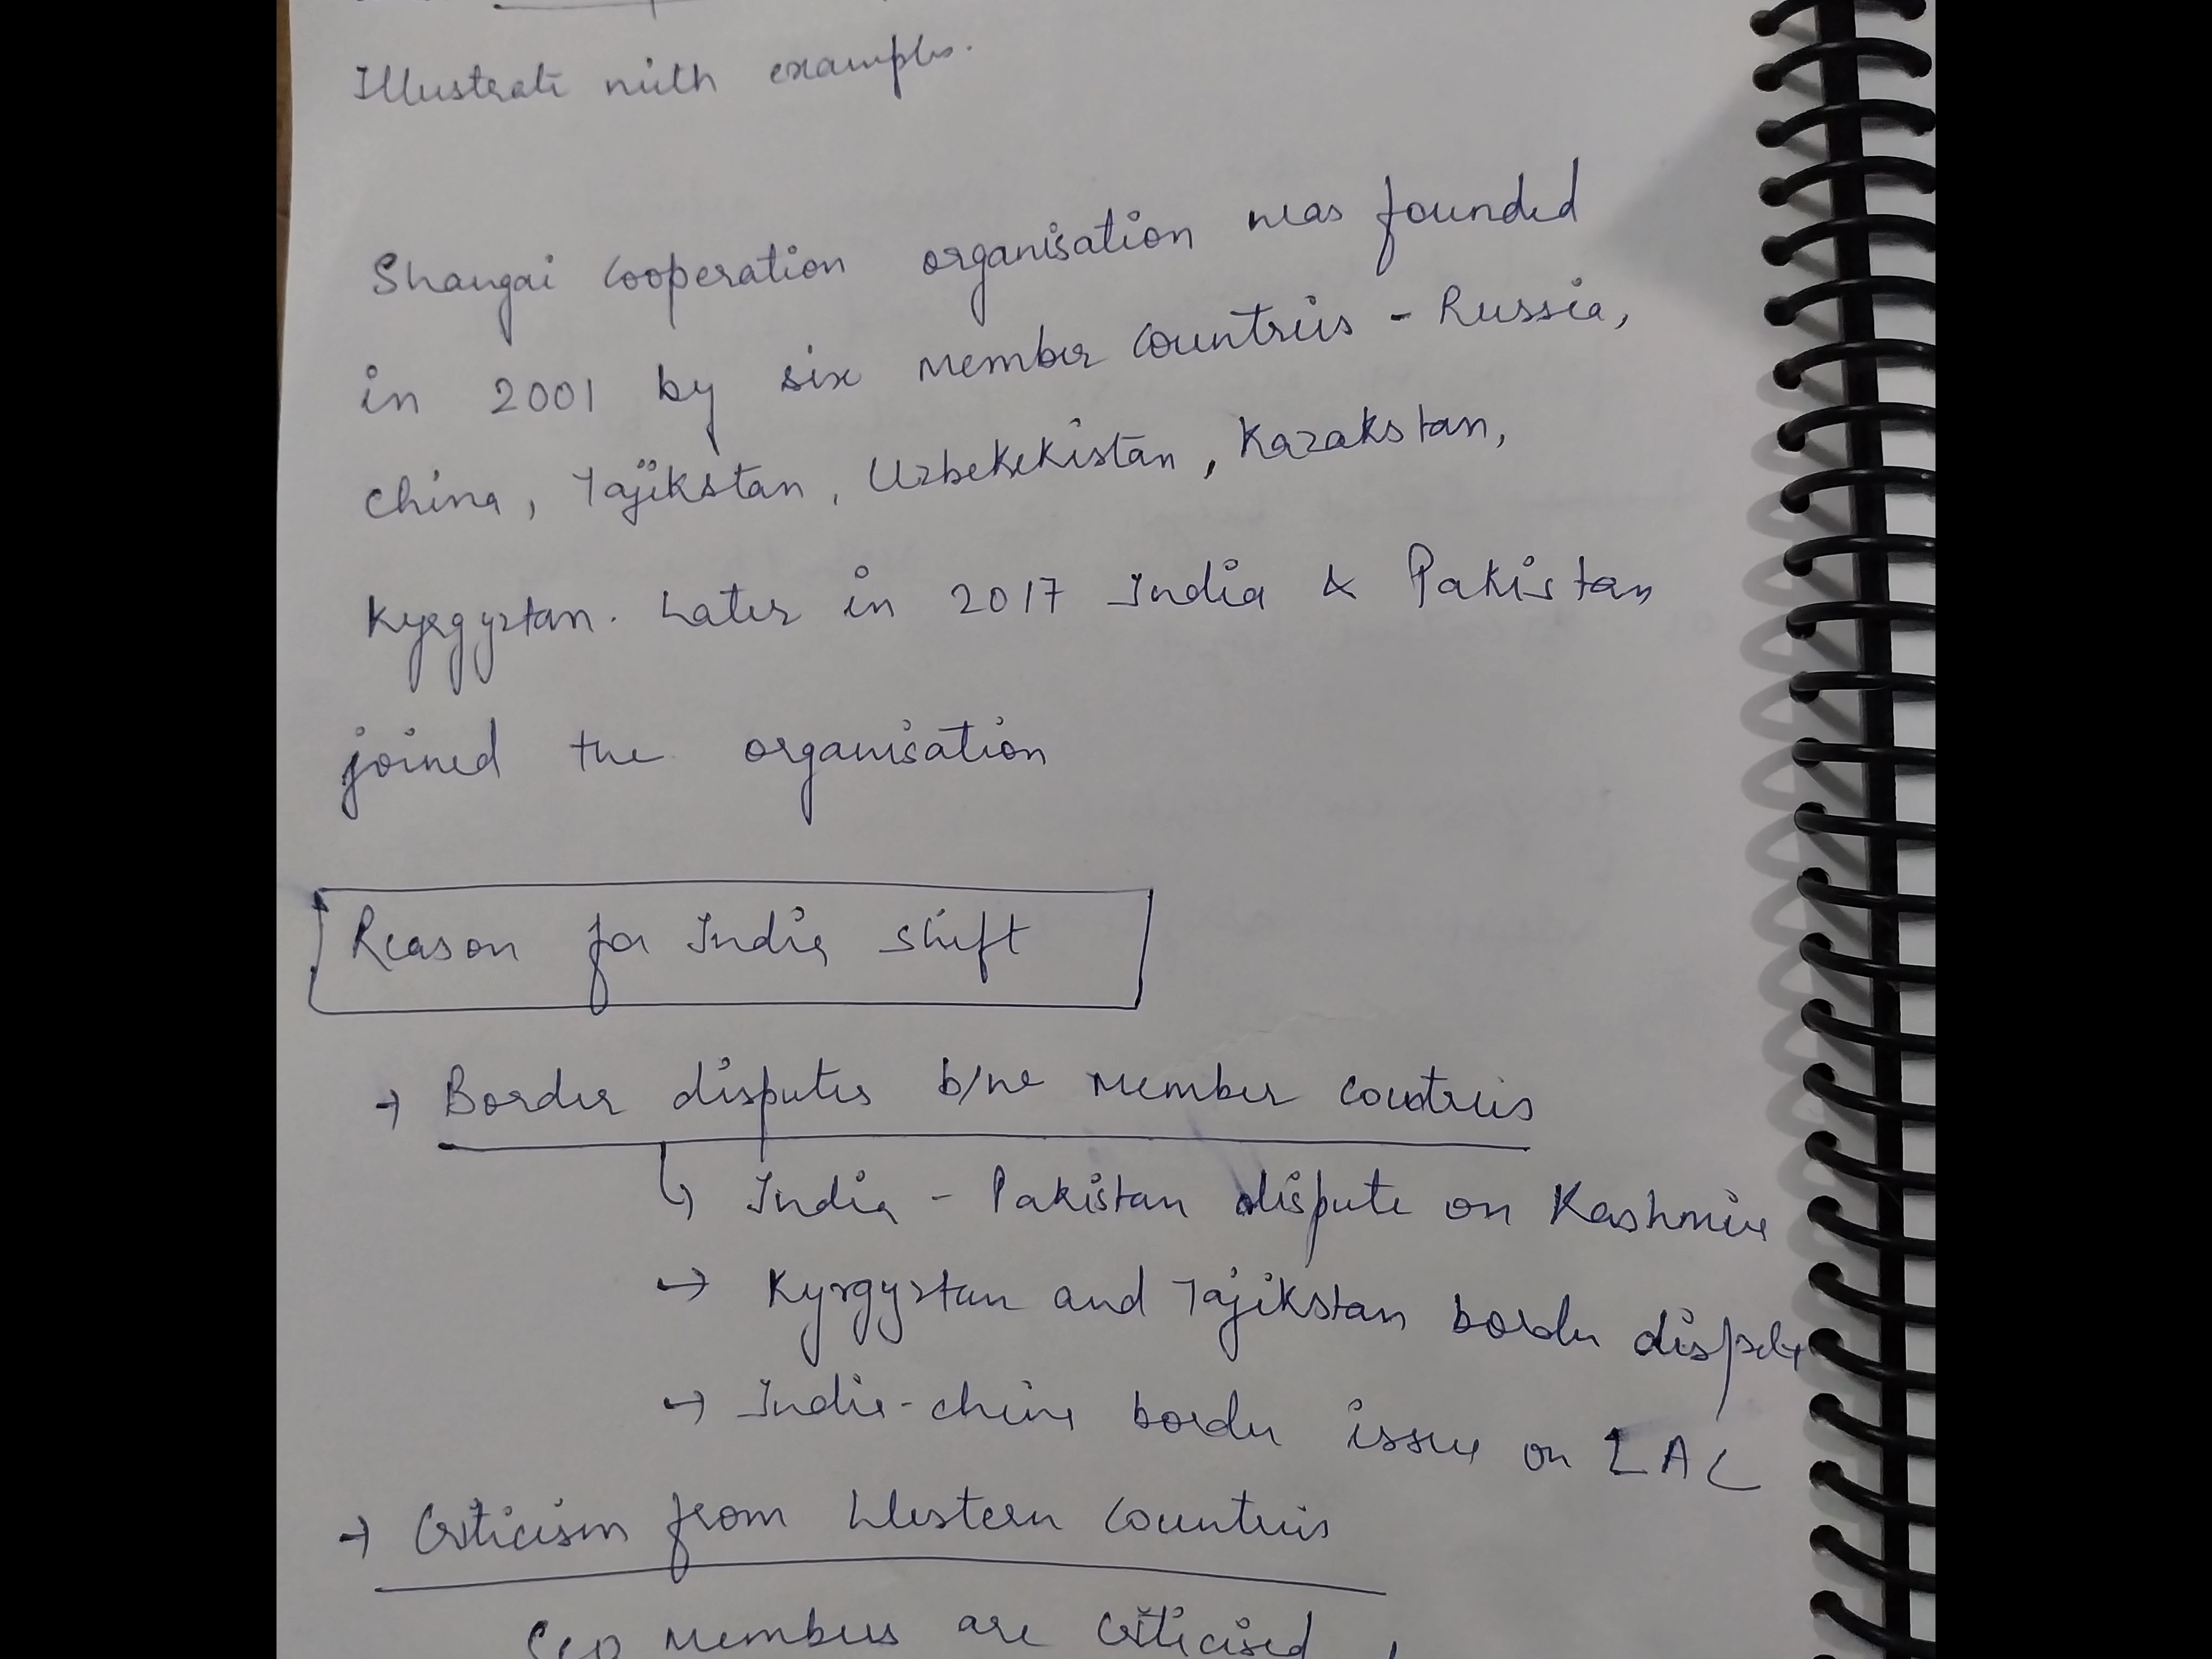 Illustrate with examples.
Shangai Cooperation organisation was founded
in 2001 by six member countries - Russia,
China, Tajikstan, Uzbekekistan, Kazakstan,
Kyrgyztan. Later in 2017 India & Pakistan
joined the organisation
Reason for India shift
→ Border disputes b/we member countries
↳ India - Pakistan dispute on Kashmir
→ Kyrgyztan and Tajikstan border dispute
→ India-china border issue on LAC
→ Criticism from Western countries
members are criticised